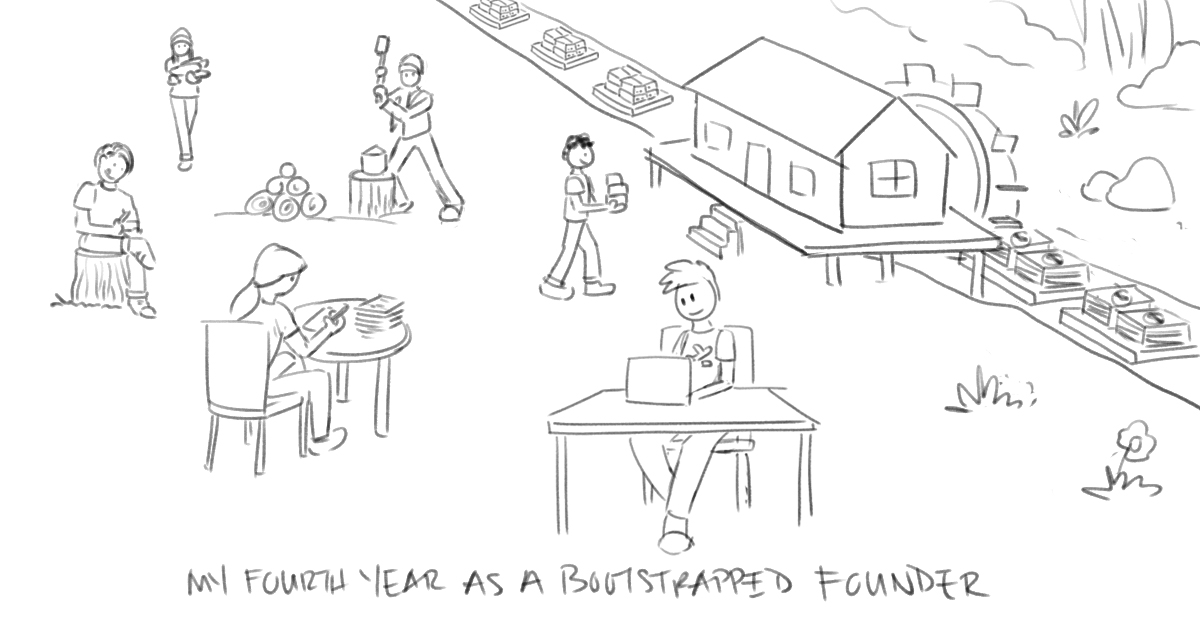 MY FOURTH YEAR AS A BOOTSTRAPPED FOUNDER